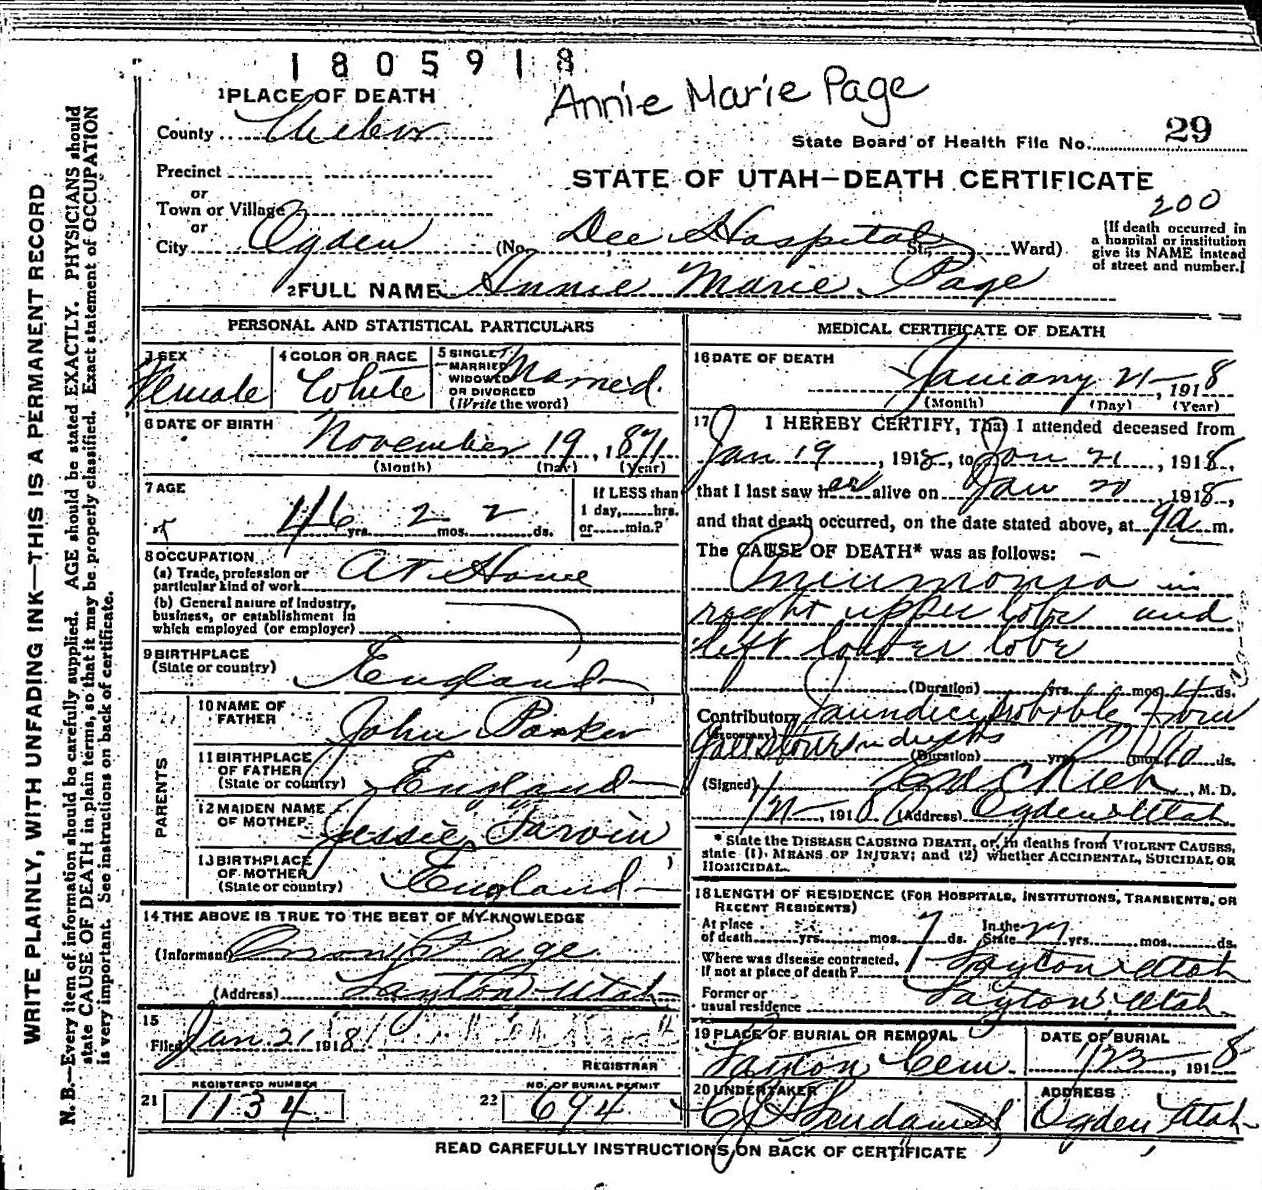 1805918
Annie Marie Page
1 PLACE OF DEATH
County Weber
State Board of Health File No. 29
Precinct
or
Town or Village
or
City Ogden (No. Dee Hospital St., Ward)
STATE OF UTAH—DEATH CERTIFICATE
200
[If death occurred in
a hospital or institution
give its NAME instead
of street and number.]
2 FULL NAME Annie Marie Page
PERSONAL AND STATISTICAL PARTICULARS
3 SEX
Female
4 COLOR OR RACE
White
5 SINGLE,
MARRIED
WIDOWED
OR DIVORCED
(Write the word)
Married.
6 DATE OF BIRTH
November 19, 1871
(Month) (Day) (Year)
7 AGE
46 yrs. 2 mos. 2 ds.
If LESS than
1 day, hrs.
or min.?
8 OCCUPATION
(a) Trade, profession or
particular kind of work At Home
(b) General nature of Industry,
business, or establishment in
which employed (or employer)
9 BIRTHPLACE
(State or country) England
PARENTS
10 NAME OF
FATHER John
11 BIRTHPLACE
OF FATHER
(State or country) England
12 MAIDEN NAME
OF MOTHER Jessie
13 BIRTHPLACE
OF MOTHER
(State or country) England
14 THE ABOVE IS TRUE TO THE BEST OF MY KNOWLEDGE
(Informant) Page
(Address) Layton Utah
15
Filed Jan 21 1918
REGISTRAR
REGISTERED NUMBER
21 1134
NO. OF BURIAL PERMIT
22 694
MEDICAL CERTIFICATE OF DEATH
16 DATE OF DEATH
January 21 — , 1918
(Month) (Day) (Year)
17 I HEREBY CERTIFY, That I attended deceased from
Jan 19, 1918, to Jan 21, 1918,
that I last saw her alive on Jan 20, 1918,
and that death occurred, on the date stated above, at 9 a m.
The CAUSE OF DEATH* was as follows:
Pneumonia in
right upper lobe and
left lower lobe
(Duration) yrs. mos. 4 ds.
Contributory Jaundice probable from
(SECONDARY)
Gall stones in ducts
(Duration) yrs. mos. 10 ds.
(Signed) Ed C Rich, M. D.
1/21—, 1918 (Address) Ogden Utah
* State the DISEASE CAUSING DEATH, or, in deaths from VIOLENT CAUSES,
state (1) MEANS OF INJURY; and (2) whether ACCIDENTAL, SUICIDAL OR
HOMICIDAL.
18 LENGTH OF RESIDENCE (FOR HOSPITALS, INSTITUTIONS, TRANSIENTS, OR
RECENT RESIDENTS)
At place
of death yrs. mos. 7 ds. In the State yrs. mos. ds.
Where was disease contracted,
if not at place of death? Layton Utah
Former or
usual residence Layton, Utah
19 PLACE OF BURIAL OR REMOVAL
Layton Cem.
DATE OF BURIAL
1/23—, 1918
20 UNDERTAKER
ADDRESS
Ogden, Utah
READ CAREFULLY INSTRUCTIONS ON BACK OF CERTIFICATE
WRITE PLAINLY, WITH UNFADING INK—THIS IS A PERMANENT RECORD
N. B.—Every item of information should be carefully supplied. AGE should be stated EXACTLY. PHYSICIANS should
state CAUSE OF DEATH in plain terms, so that it may be properly classified. Exact statement of OCCUPATION
is very important. See instructions on back of certificate.